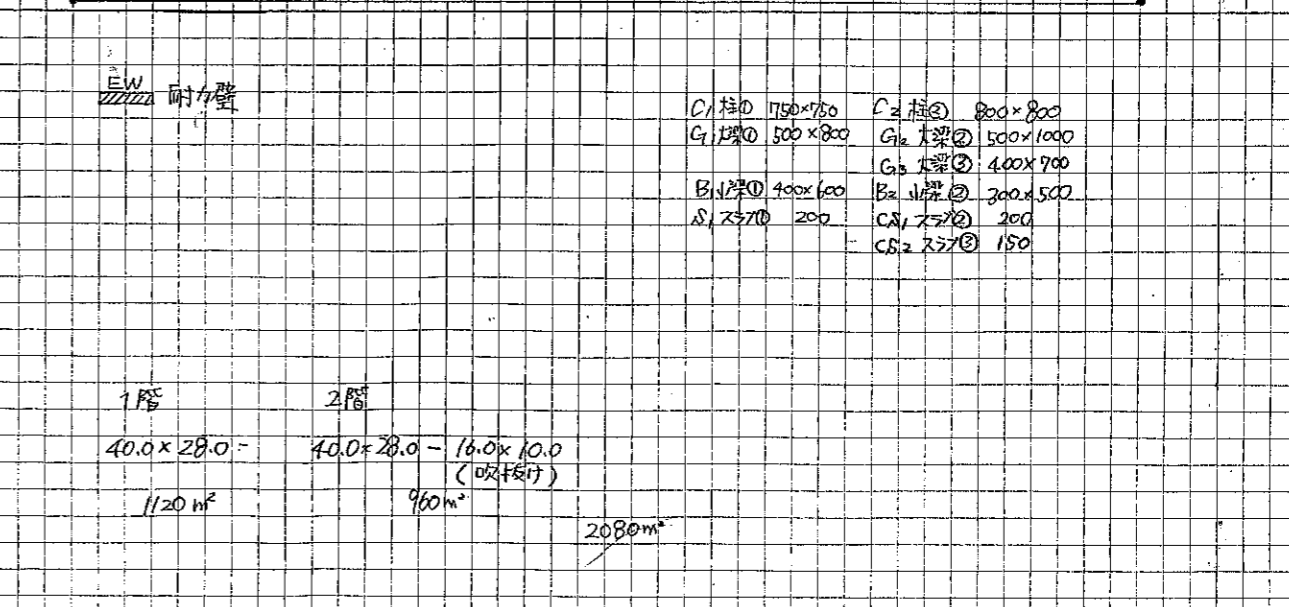 EW 耐力壁
C1 柱① 750×750 C2 柱② 800×800
G1 大梁① 500×800 G2 大梁② 500×1000
G3 大梁③ 400×700
B1 小梁① 400×600 B2 小梁② 300×500
S1 スラブ① 200 CS1 スラブ② 200
CS2 スラブ③ 150
1階 2階
40.0×28.0= 40.0×28.0 - 16.0×10.0
(吹抜け)
1120㎡ 960㎡
2080㎡